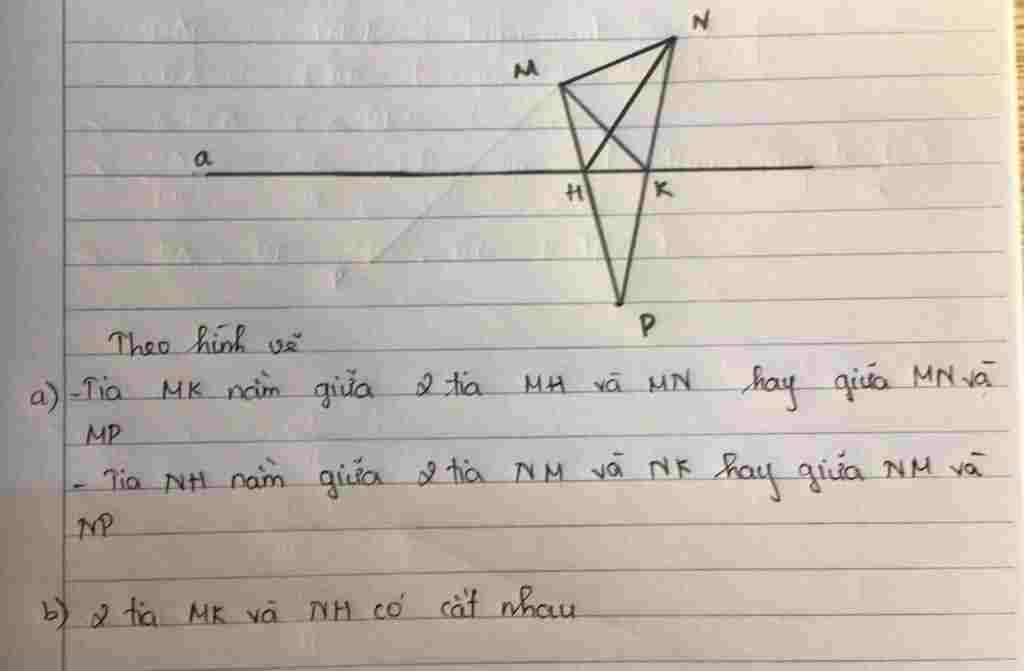 N
M
a
H K
P
Theo hình vẽ
a) - Tia MK nằm giữa 2 tia MH và MN hay giữa MN và
MP
- Tia NH nằm giữa 2 tia NM và NK hay giữa NM và
NP
b) 2 tia MK và NH có cắt nhau